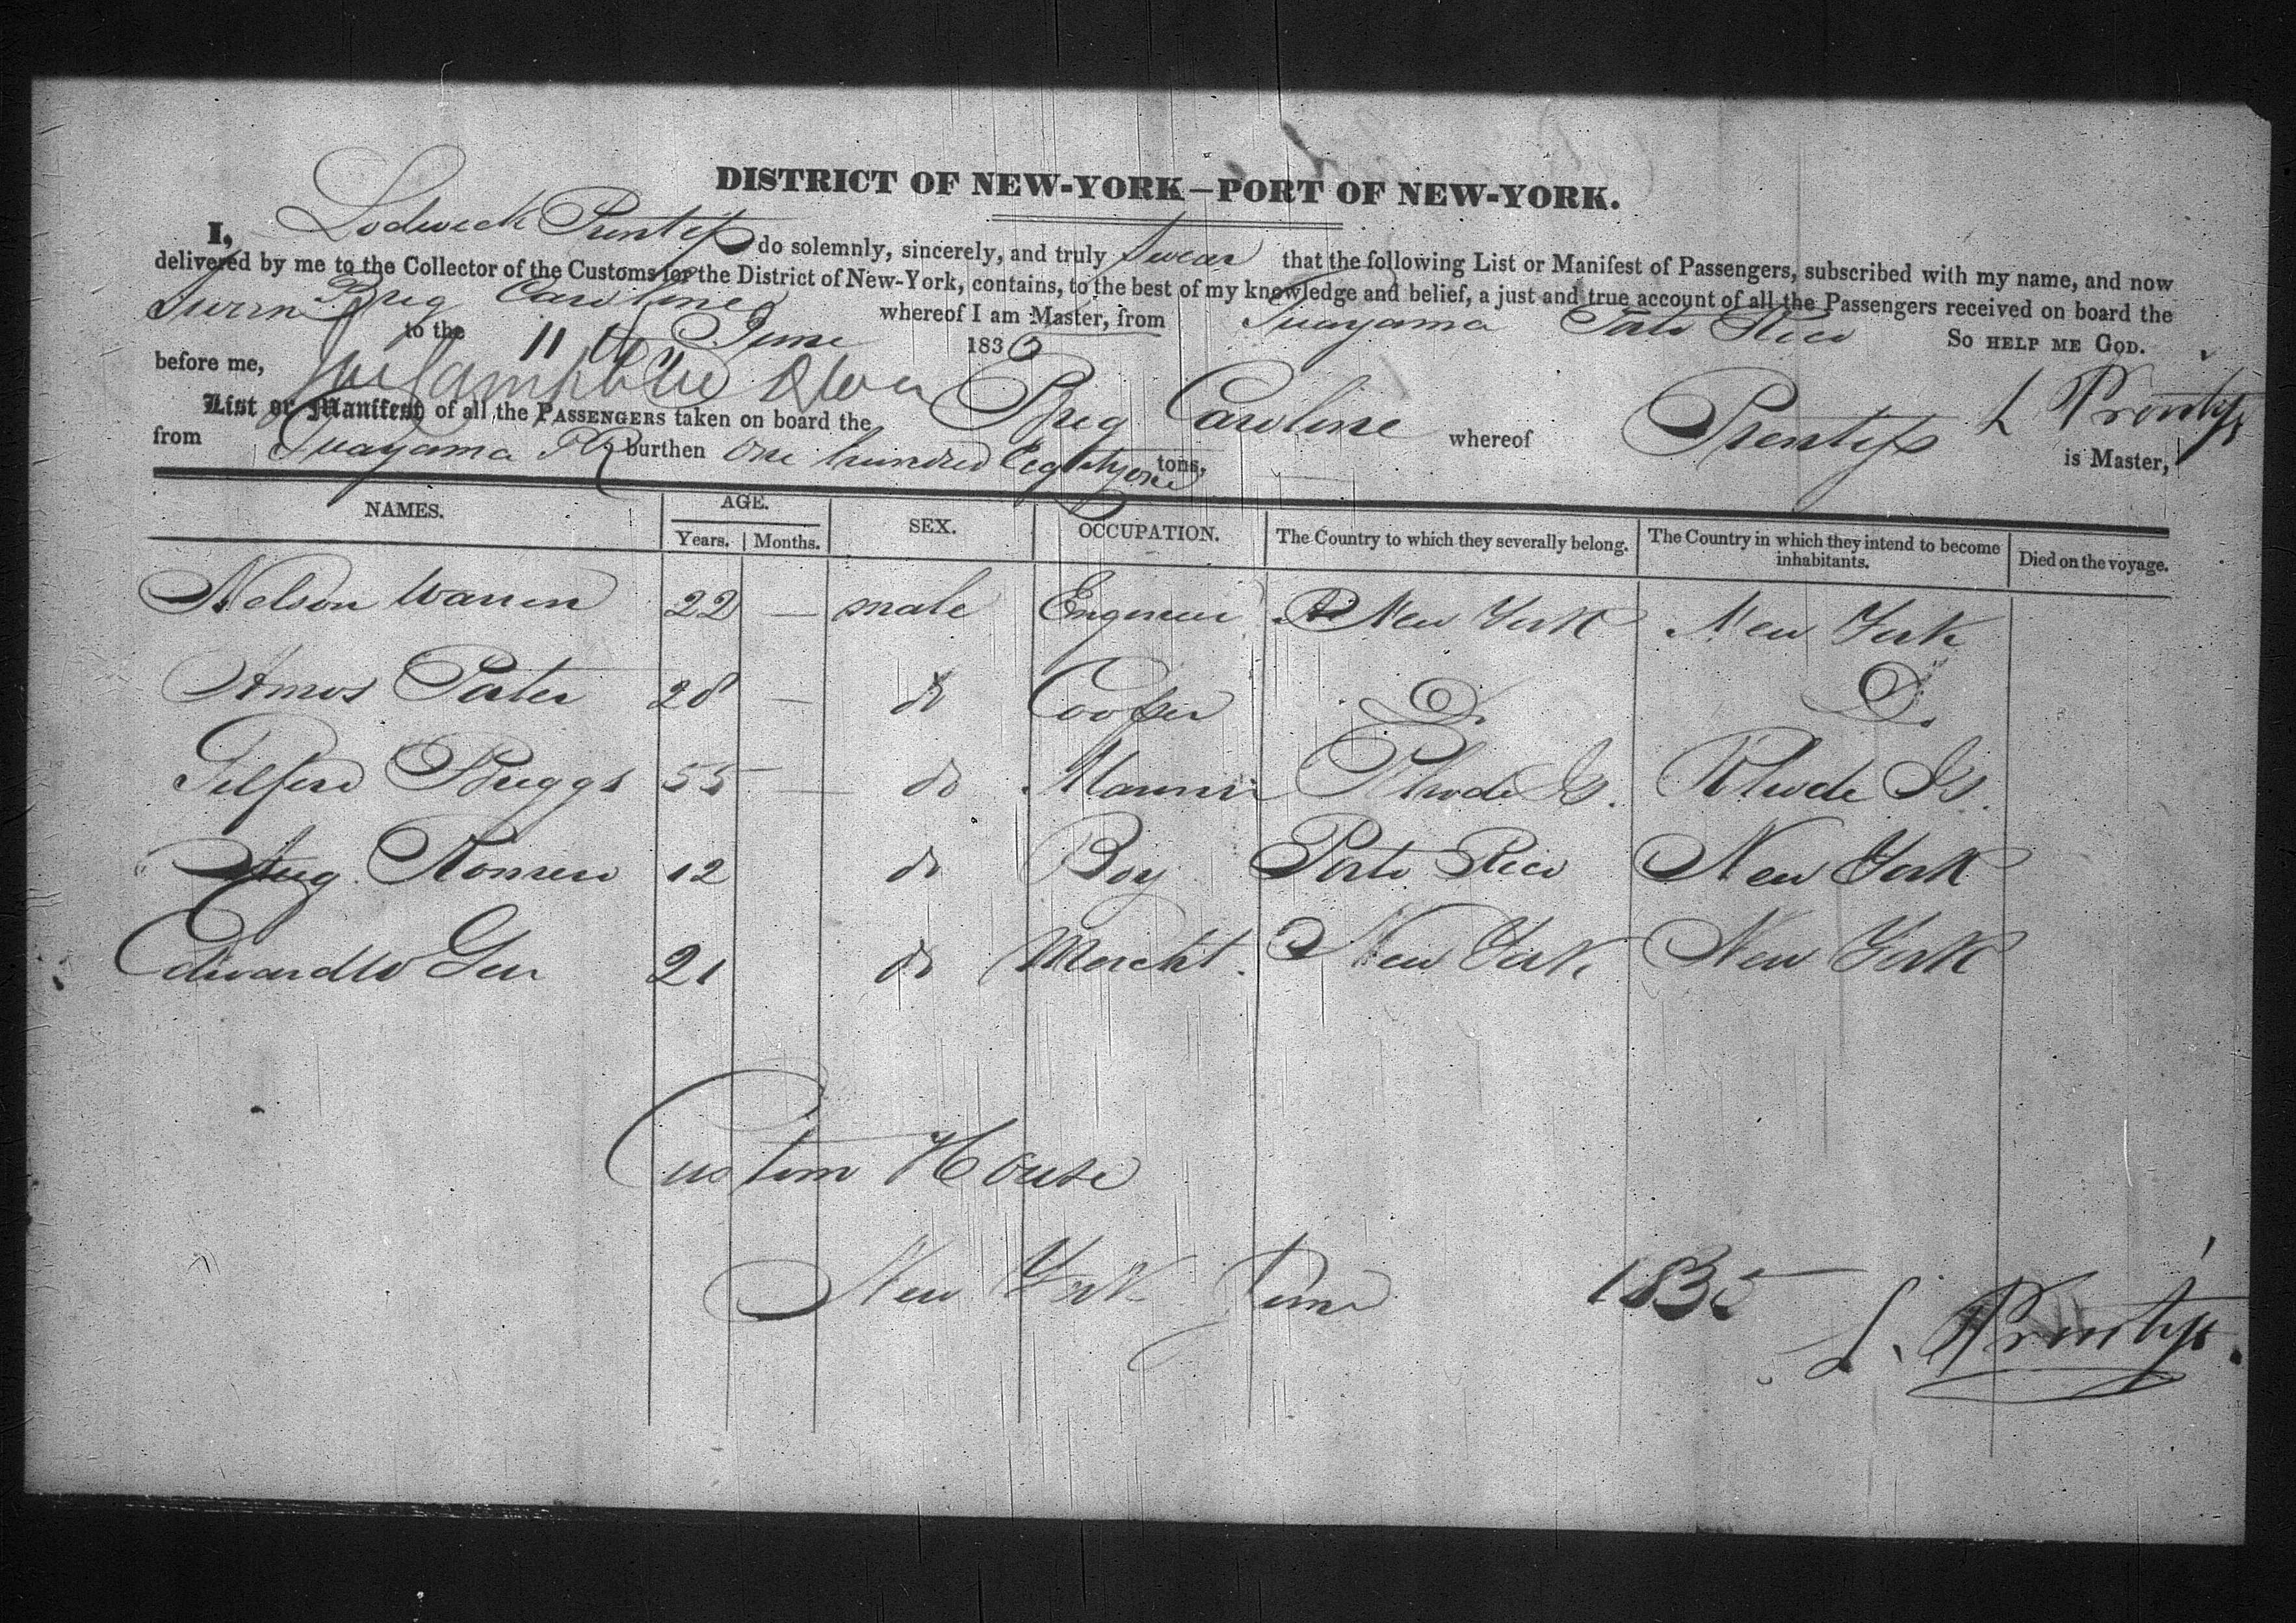 DISTRICT OF NEW-YORK—PORT OF NEW-YORK.
I, Lodwick Prentiss do solemnly, sincerely, and truly swear that the following List or Manifest of Passengers, subscribed with my name, and now
delivered by me to the Collector of the Customs for the District of New-York, contains, to the best of my knowledge and belief, a just and true account of all the Passengers received on board the
Brig Caroline whereof I am Master, from Guayama Porto Rico
Sworn to the 11th June 183 So HELP ME GOD.
before me, L Prentiss
List or Manifest of all the PASSENGERS taken on board the Brig Caroline whereof Prentiss is Master,
from Guayama PR burthen One hundred Eighty one tons,
NAMES. AGE. SEX. OCCUPATION. The Country to which they severally belong. The Country in which they intend to become inhabitants. Died on the voyage.
Years. Months.
Nelson Warren 22 — male Engineer New York New York
Amos Porter 28 — do Cooper Do. Do.
Pelford Briggs 55 — do Marinir Rhode Is. Rhode Is.
Aug. Romero 12 do Boy Porto Rico New York
Edward W Geer 21 do Mercht. New York New York
Custom House
New York June 1835
L. Prentiss.